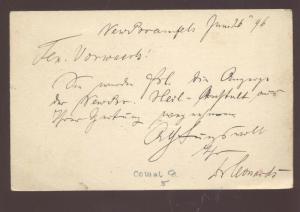 New Braunfels Juni 26" 96
Tex. Vorwaerts!
Sie wurden frdl. die Anzeige
der New Br. Heil-Anstalt aus
Ihrer Zeitung wegnehmen
Achtungsvoll
Ihr
Dr Leonards
Comal Co
5